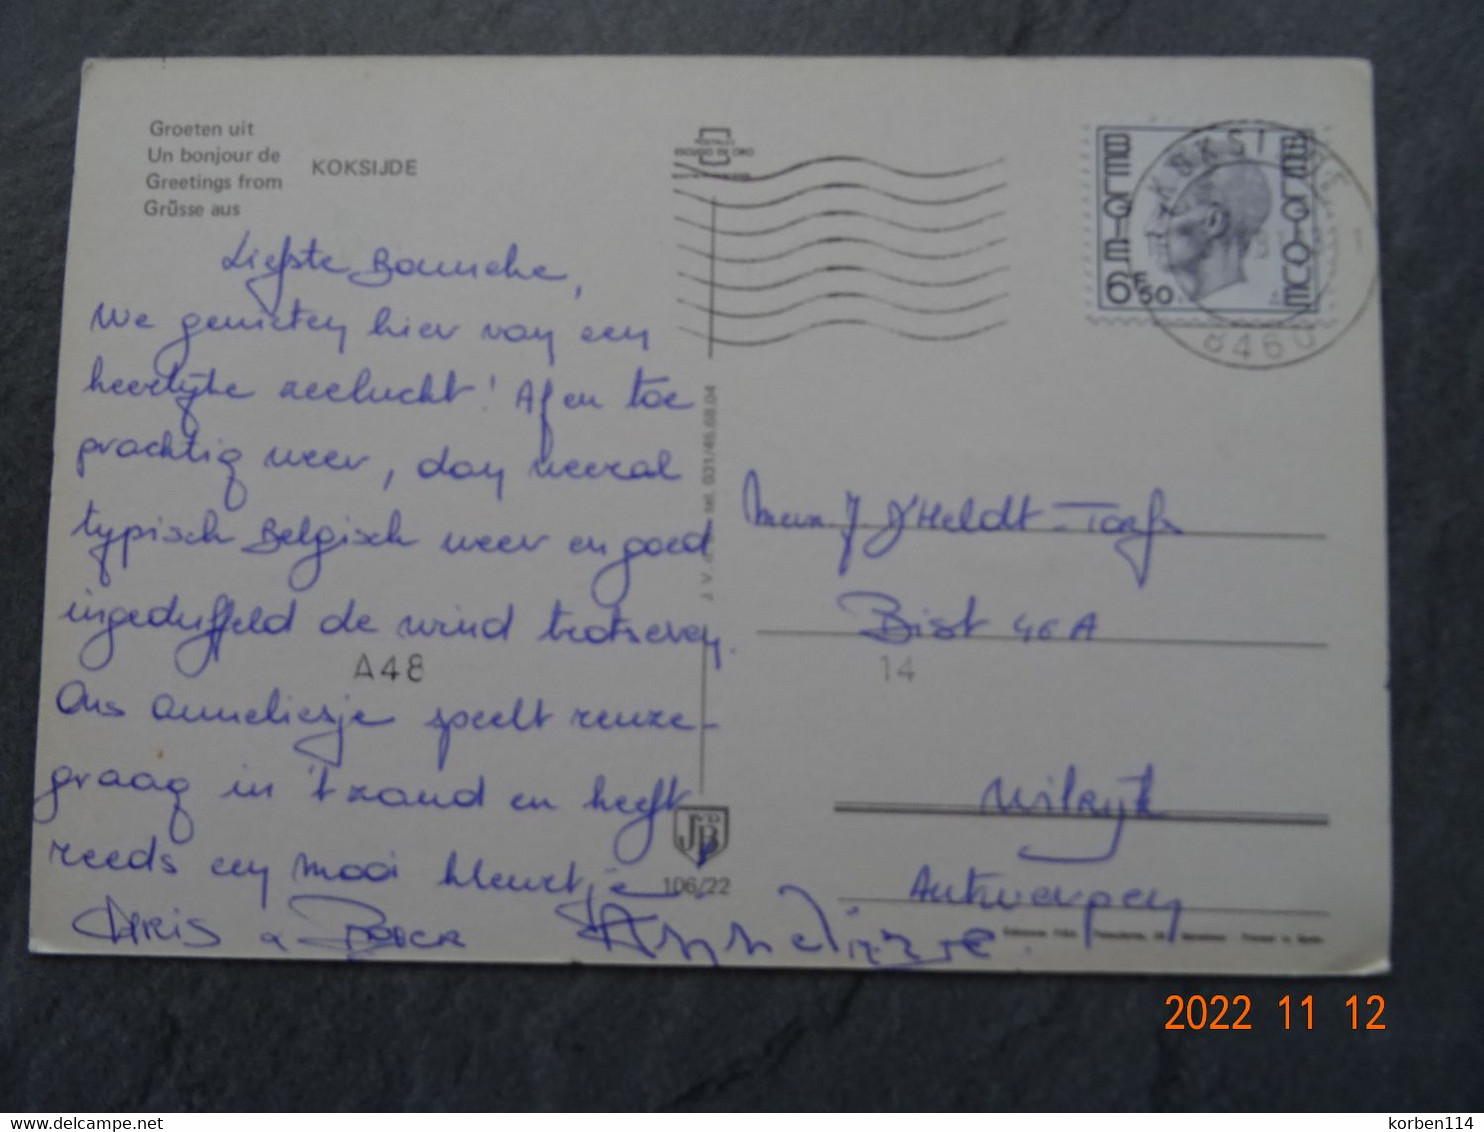 Groeten uit
Un bonjour de
Greetings from
Grüsse aus
KOKSIJDE
Liefste Bomieke,
We genieten hier van een
heerlijke zeelucht! Af en toe
prachtig weer, dan weeral
typisch Belgisch weer en goed
ingeduffeld de wind trotseren.
Ons Anneliesje speelt reuze-
graag in 't zand en heeft
reeds een mooi kleurtje
CHRIS &
POSTALES
ESCUDO DE ORO
BELGIE
BELGIQUE
6F50
KOKSIJDE
8460
tel. 031/45.68.04
A48
14
JVDB
106/22
Mevr. J. D'Heldt-Torfs
Bist 46A
Wilrijk
Antwerpen
2022 11 12
Delcampe.net korben114